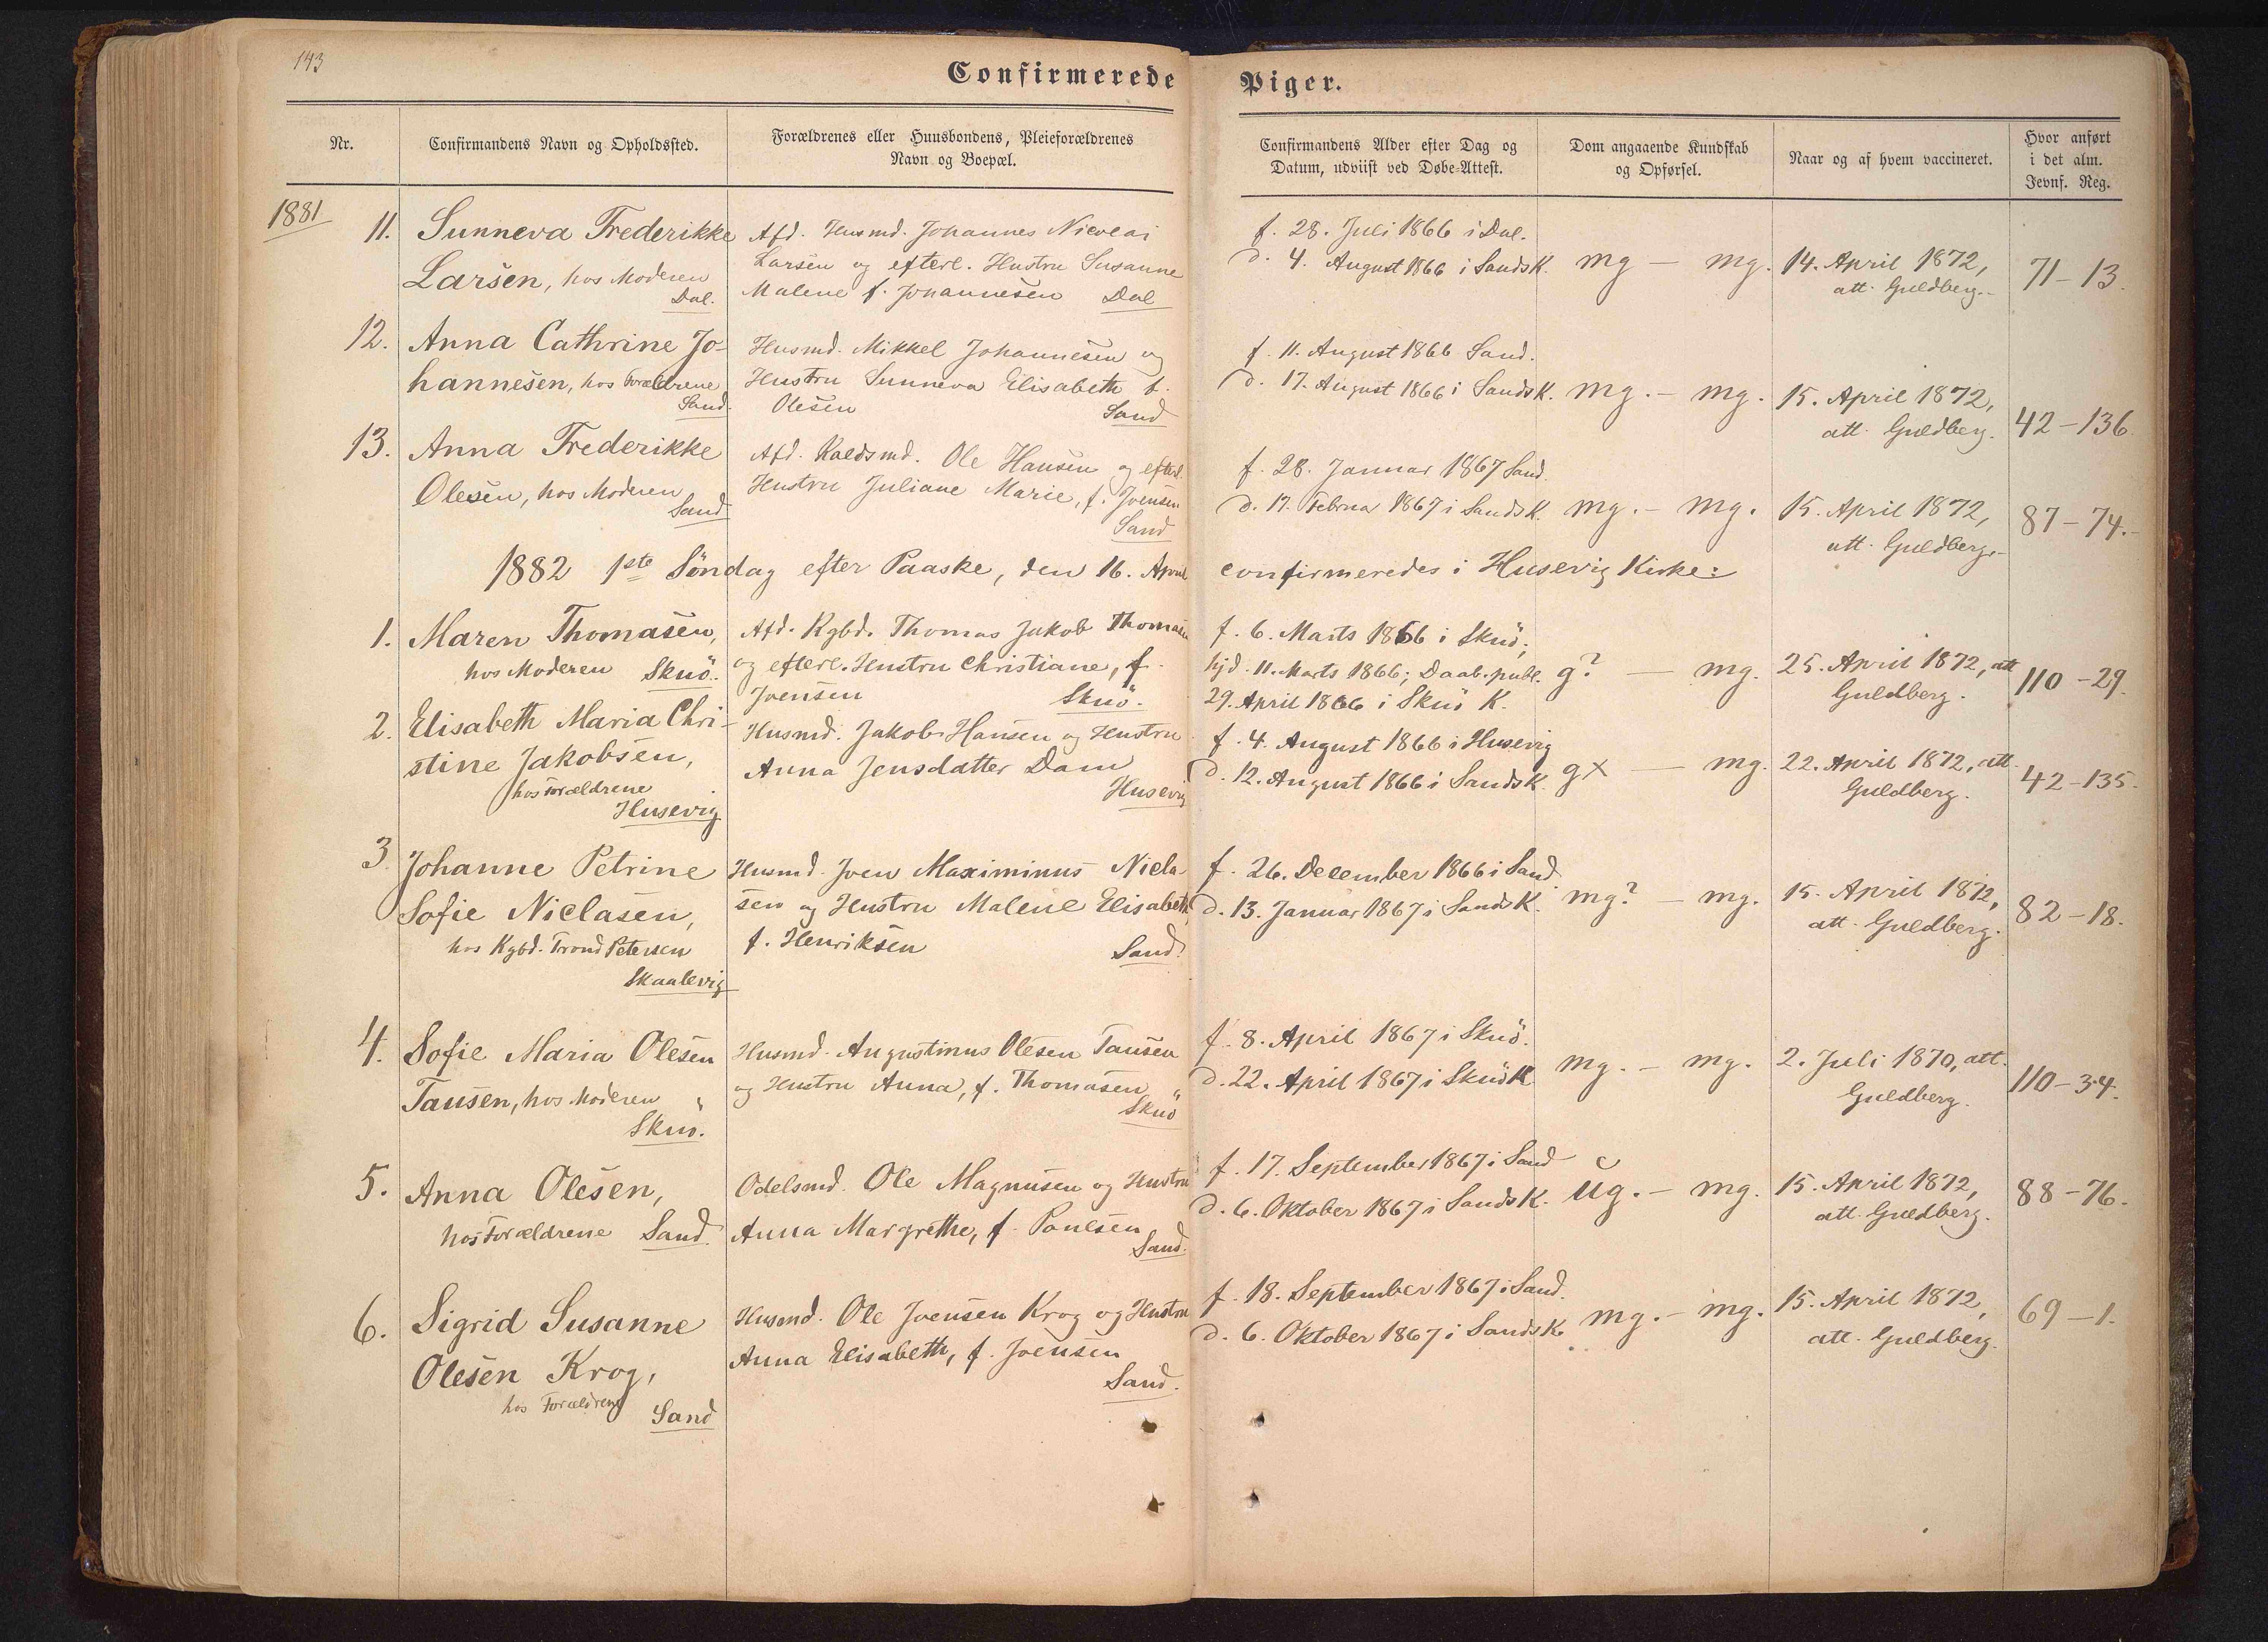 143
Confirmerede Piger.
Nr.
Confirmandens Navn og Opholdssted.
Forældrenes eller Huusbondens, Pleieforældrenes
Navn og Boepæl.
Confirmandens Alder efter Dag og
Datum, udviist ved Døbe-Attest.
Dom angaaende Kundskab
og Opførsel.
Naar og af hvem vaccineret.
Hvor anført
i det alm.
Jevnf. Reg.
1881
11.
Sunneva Frederikke
Larsen, hos Moderen
Dal.
Afd. Husmd. Johannes Nicolai
Larsen og efterl. Hustru Susanne
Malene f. Johannesen Dal
f. 28. Juli 1866 i Dal.
d. 4. August 1866 i Sands K.
mg — mg.
14. April 1872,
att. Guldberg.-
71-13.
12.
Anna Cathrine Jo-
hannesen, hos Forældrene
Sand.
Husmd. Mikkel Johannesen og
Hustru Sunneva Elisabeth f.
Olesen Sand
f. 11. August 1866 Sand.
d. 17. August 1866 i Sands K.
mg. - mg.
15. April 1872,
att. Guldberg.
42-136
13.
Anna Frederikke
Olesen, hos Moderen
Sand
Afd. Kaldsmd. Ole Hansen og efterl.
Hustru Juliane Marie, f. Joensen
Sand
f. 28. Januar 1867 Sand.
d. 17. Februa 1867 i Sands K.
mg. - mg.
15. April 1872,
att. Guldberg.-
87-74.-
1882 1ste Søndag efter Paaske, den 16. April confirmeredes i Husevig Kirke:
1.
Maren Thomasen,
hos Moderen Skuö.
Afd. Kgbd. Thomas Jakob Thomasen
og efterl. Hustru Christiane, f.
Joensen Skuö.
f. 6. Marts 1866 i Skuö;
hjd. 11. Marts 1866; Daab. publ.
29. April 1866 i Skuö K.
g? — mg.
25. April 1872, att
Guldberg.
110-29.
2.
Elisabeth Maria Chri-
stine Jakobsen,
hos Forældrene
Husevig
Husmd. Jakob Hansen og Hustru
Anna Jensdatter Dam
Husevig
f. 4. August 1866 i Husevig
d. 12. August 1866 i Sands K.
gx — mg.
22. April 1872, att.
Guldberg.
42-135.
3
Johanne Petrine
Sofie Niclasen,
hos Kgbd. Trond Petersen
Skaalevig
Husmd. Joen Maximinus Nicla-
sen og Hustru Malene Elisabeth,
f. Henriksen Sand.
f. 26. December 1866 i Sand.
d. 13. Januar 1867 i Sands K.
mg? - mg.
15. April 1872,
att. Guldberg.
82-18.
4.
Sofie Maria Olesen
Tausen, hos Moderen
Skuö.
Husmd. Augustinus Olesen Tausen
og Hustru Anna, f. Thomasen
Skuö
f. 8. April 1867 i Skuö.
d. 22. April 1867 i Skuö K
mg. - mg.
2. Juli 1870, att.
Guldberg.
110-34.
5.
Anna Olesen,
hos Forældrene Sand.
Odelsmd. Ole Magnusen og Hustru
Anna Margrethe, f. Poulsen
Sand.
f. 17. September 1867 i Sand
d. 6. Oktober 1867 i Sands K.
ug. - mg.
15. April 1872,
att. Guldberg.
88-76.
6.
Sigrid Susanne
Olesen Krog,
hos Forældrene
Sand
Husmd. Ole Joensen Krog og Hustru
Anna Elisabeth, f. Joensen
Sand.
f. 18. September 1867 i Sand.
d. 6. Oktober 1867 i Sands K.
mg. - mg.
15. April 1872,
att. Guldberg.
69-1.